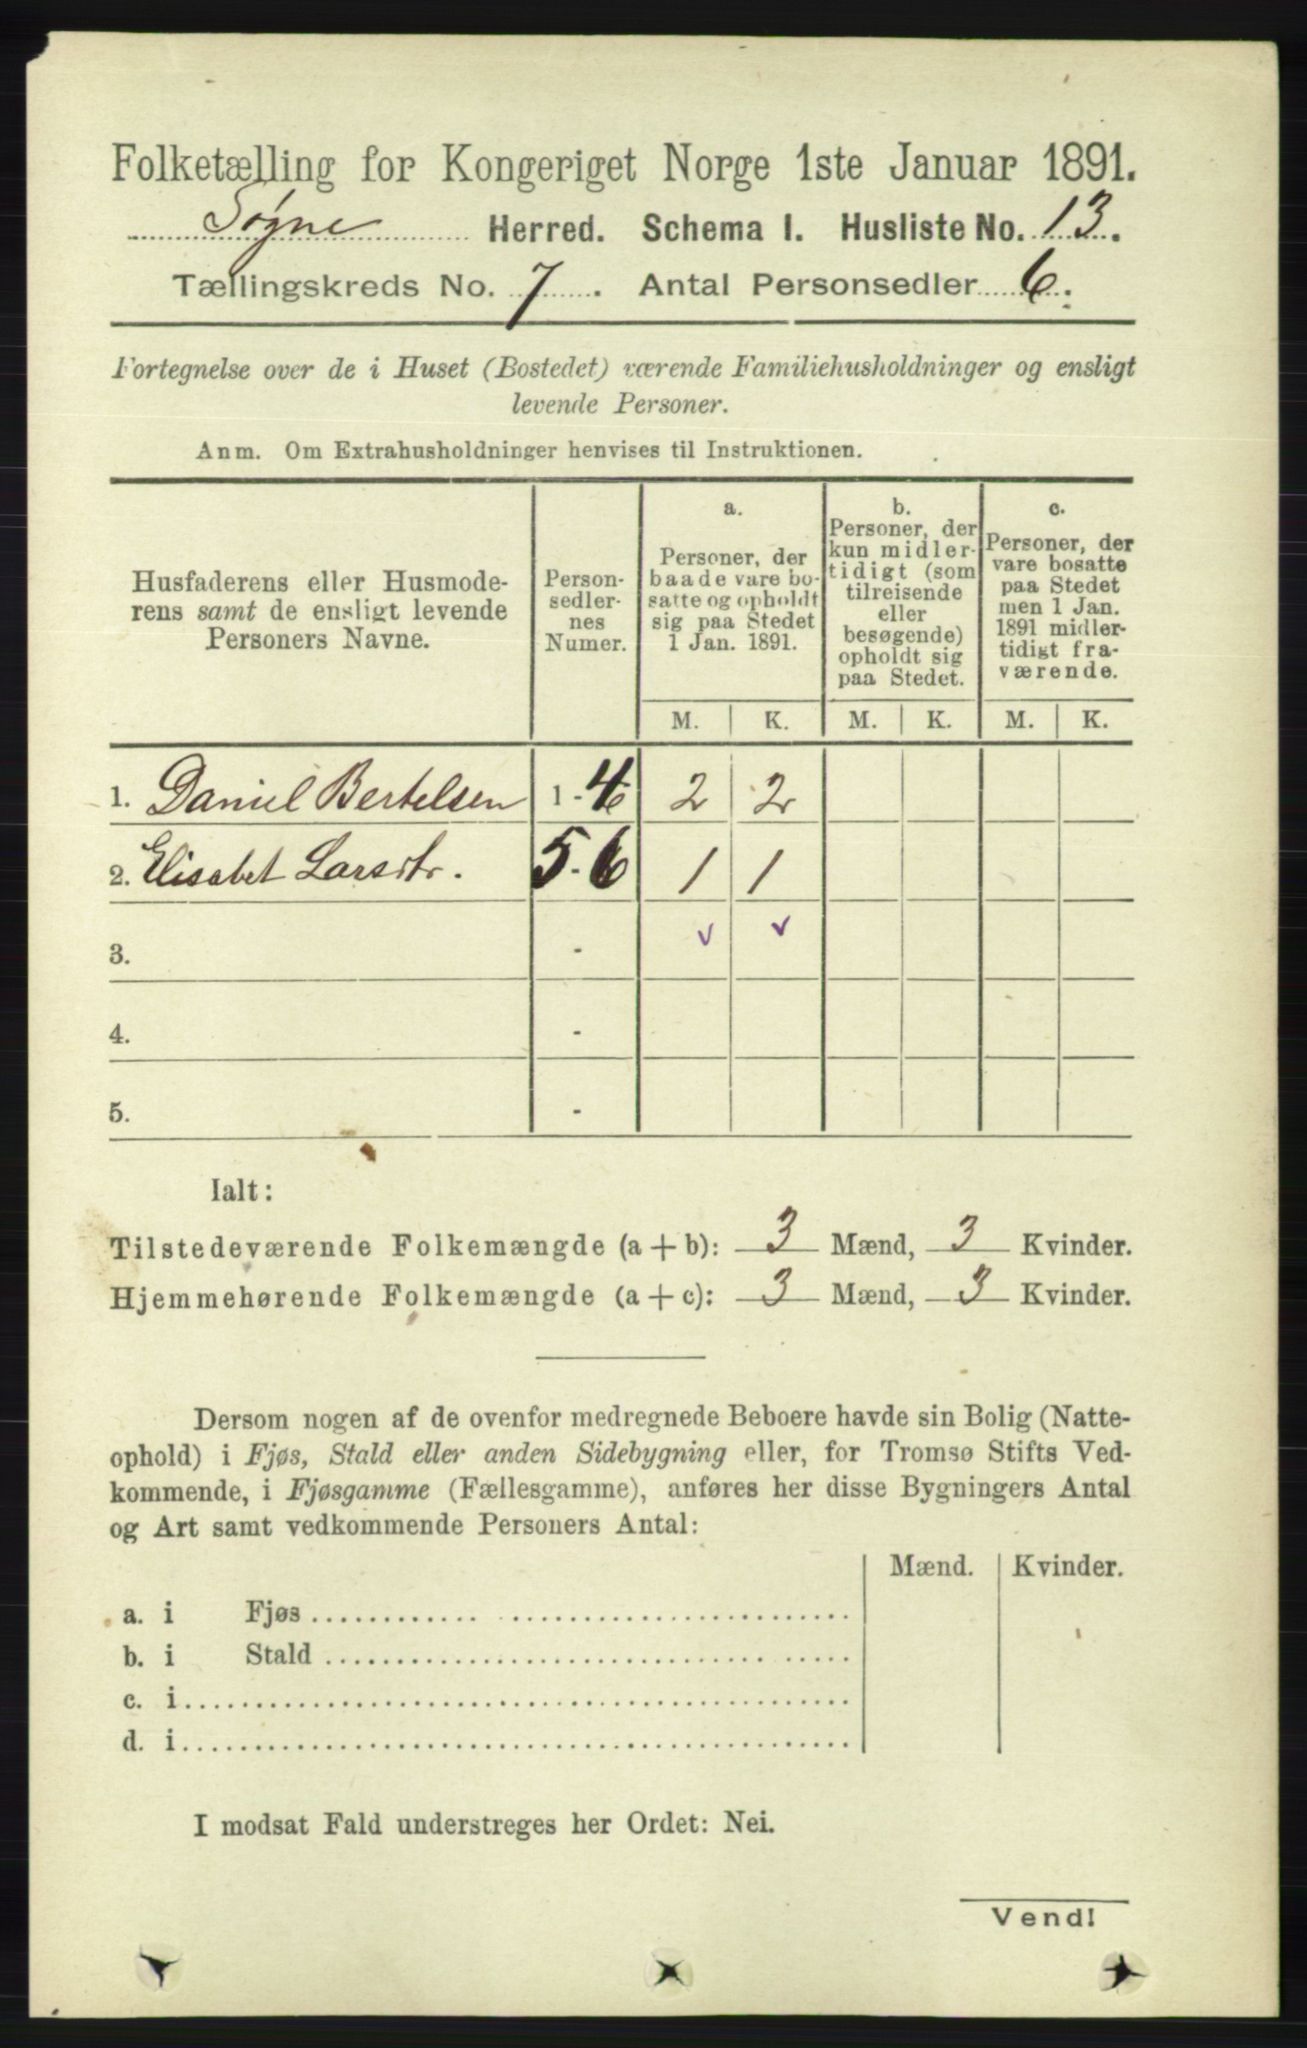 Folketælling for Kongeriget Norge 1ste Januar 1891.
Søgne Herred. Schema I. Husliste No. 13.
Tællingskreds No. 7. Antal Personsedler 6.
Fortegnelse over de i Huset (Bostedet) værende Familiehusholdninger og ensligt
levende Personer.
Anm. Om Extrahusholdninger henvises til Instruktionen.
Husfaderens eller Husmode-
rens samt de ensligt levende
Personers Navne.
Person-
sedler-
nes
Numer.
a.
Personer, der
baade vare bo-
satte og opholdt
sig paa Stedet
1 Jan. 1891.
b.
Personer, der
kun midler-
tidigt (som
tilreisende
eller
besøgende)
opholdt sig
paa Stedet.
c.
Personer, der
vare bosatte
paa Stedet
men 1 Jan.
1891 midler-
tidigt fra-
værende.
M. K. M. K. M. K.
1. Daniel Bertelsen 1 - 4 2 2
2. Elisabet Larsdtr. 5 - 6 1 1
3. - v v
4. -
5. -
Ialt:
Tilstedeværende Folkemængde (a + b): 3 Mænd, 3 Kvinder.
Hjemmehørende Folkemængde (a + c): 3 Mænd, 3 Kvinder.
Dersom nogen af de ovenfor medregnede Beboere havde sin Bolig (Natte-
ophold) i Fjøs, Stald eller anden Sidebygning eller, for Tromsø Stifts Ved-
kommende, i Fjøsgamme (Fællesgamme), anføres her disse Bygningers Antal
og Art samt vedkommende Personers Antal:
Mænd. Kvinder.
a. i Fjøs
b. i Stald
c. i
d. i
I modsat Fald understreges her Ordet: Nei.
Vend!